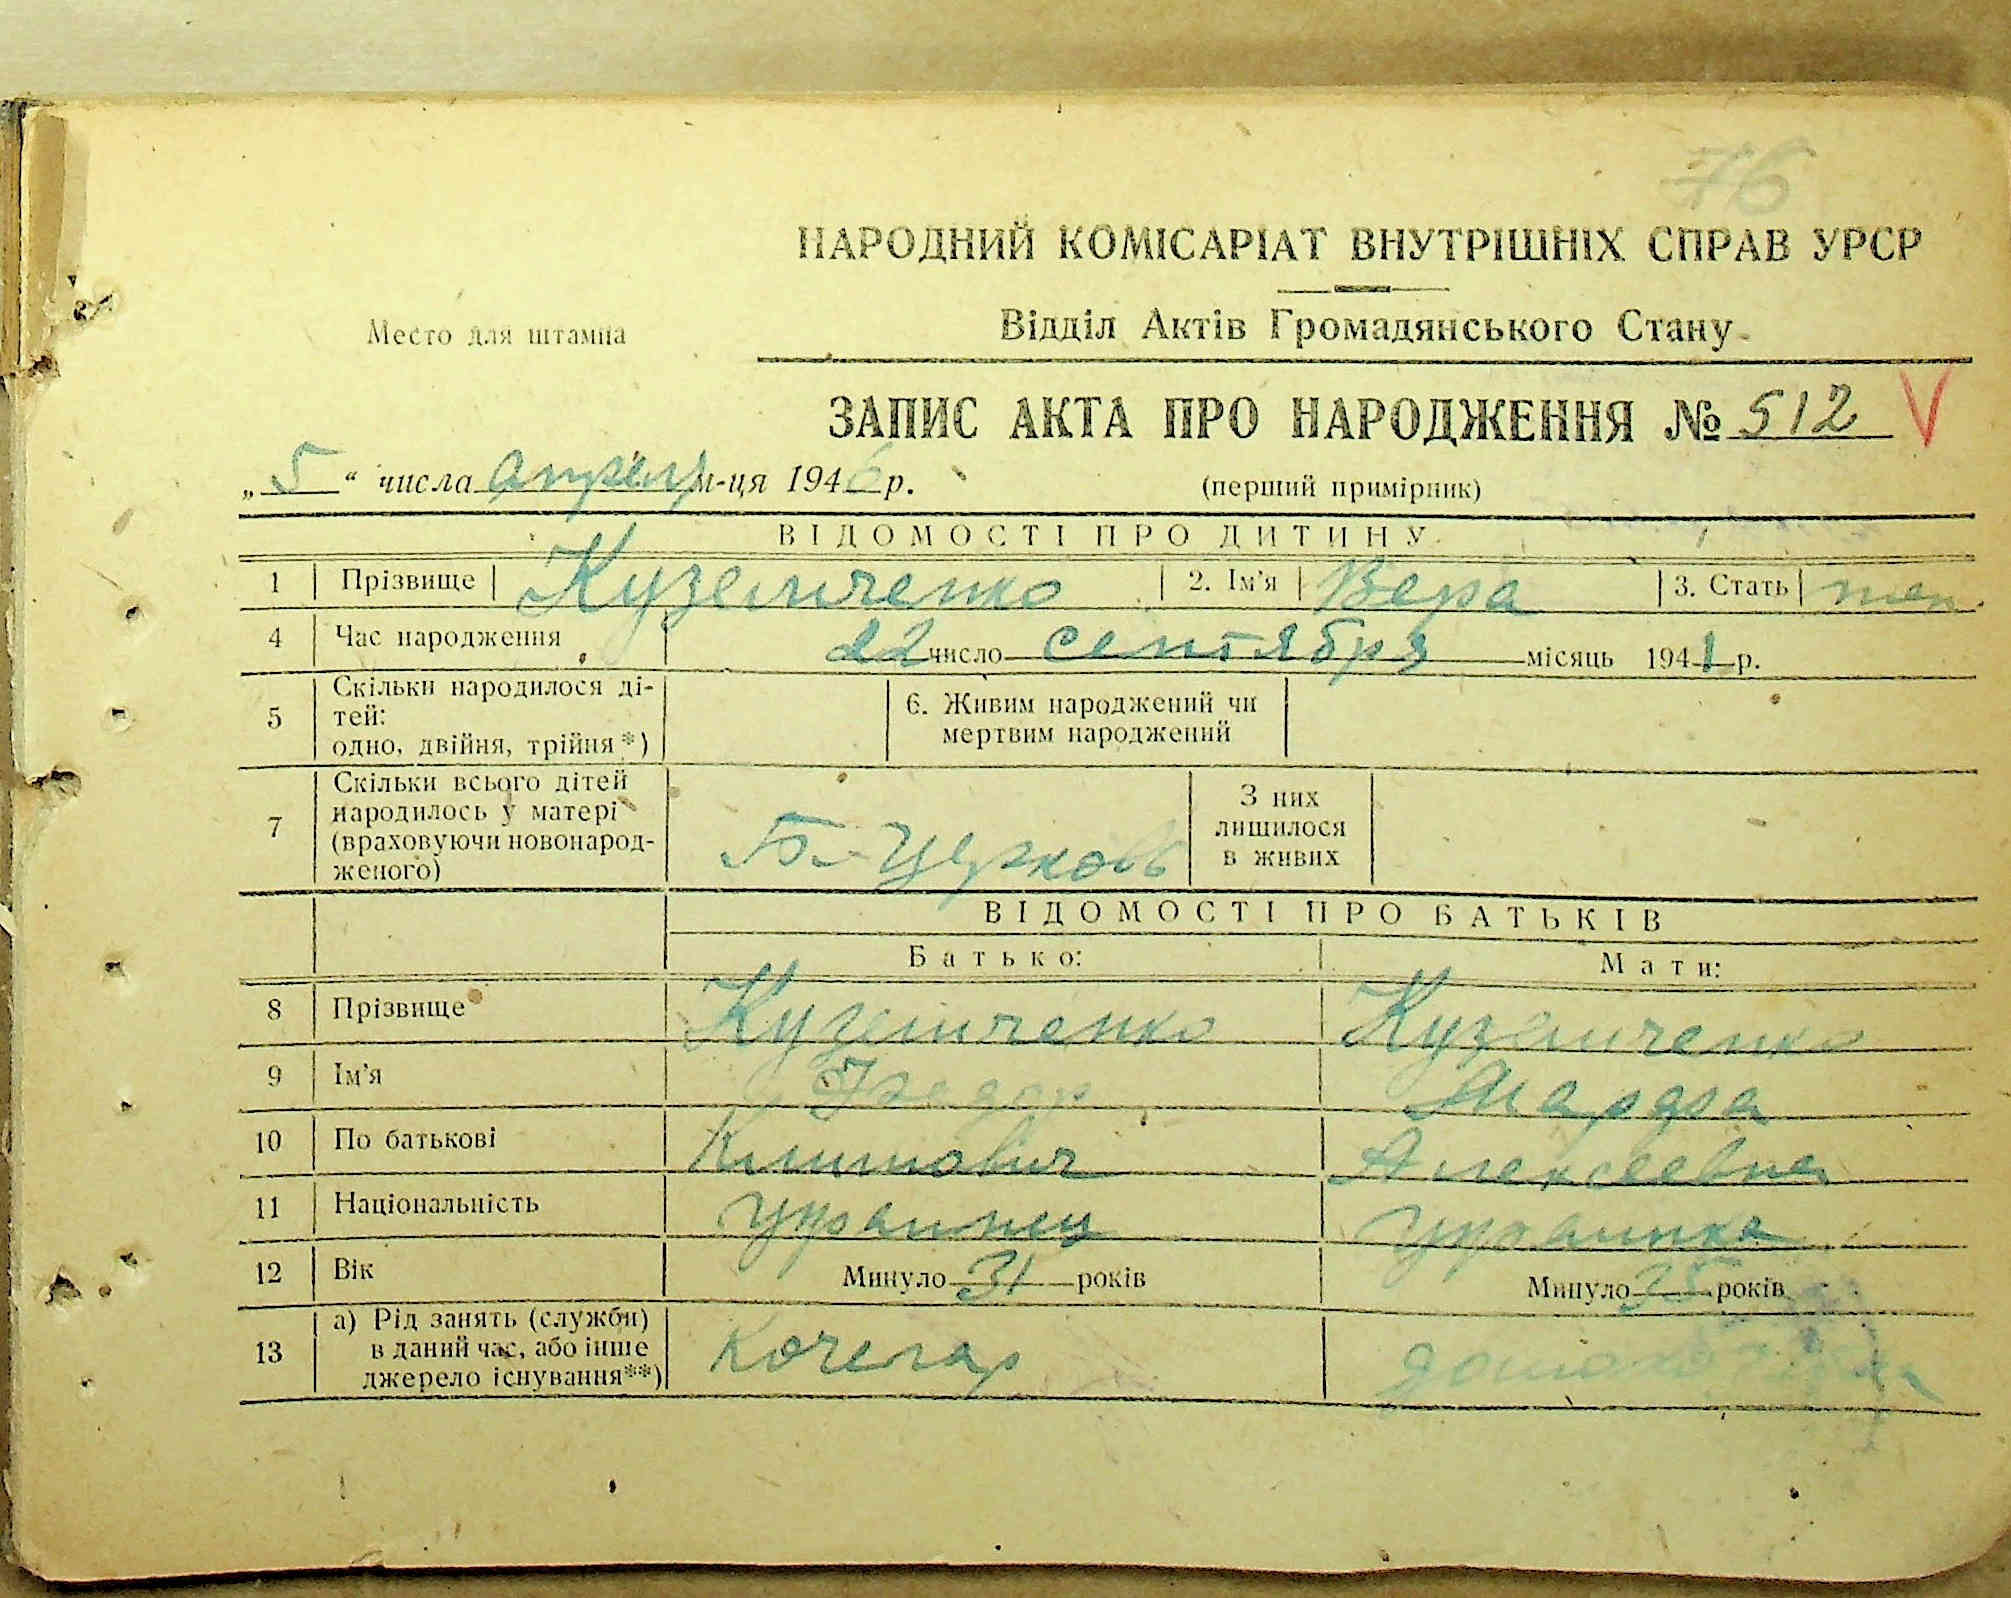 76
НАРОДНИЙ КОМІСАРІАТ ВНУТРІШНІХ СПРАВ УРСР
Место для штампа
Відділ Актів Громадянського Стану
ЗАПИС АКТА ПРО НАРОДЖЕННЯ № 512 V
„5“ числа апреля м-ця 1946 р. (перший примірник)
ВІДОМОСТІ ПРО ДИТИНУ
1 Прізвище Кузьмиченко 2. Ім'я Вера 3. Стать жен.
4 Час народження 22 число сентября місяць 1941 р.
5 Скільки народилося ді-
тей:
одно, двійня, трійня*)
6. Живим народжений чи
мертвим народжений
7 Скільки всього дітей
народилось у матері
(враховуючи новонарод-
женого)
Б-Церковь
З них
лишилося
в живих
ВІДОМОСТІ ПРО БАТЬКІВ
Батько: Мати:
8 Прізвище Кузьмиченко Кузьмиченко
9 Ім'я Федор Марфа
10 По батькові Климович Алексеевна
11 Національність украинец украинка
12 Вік Минуло 31 років Минуло 35 років
13 а) Рід занять (служби)
в даний час, або інше
джерело існування**)
Кочегар